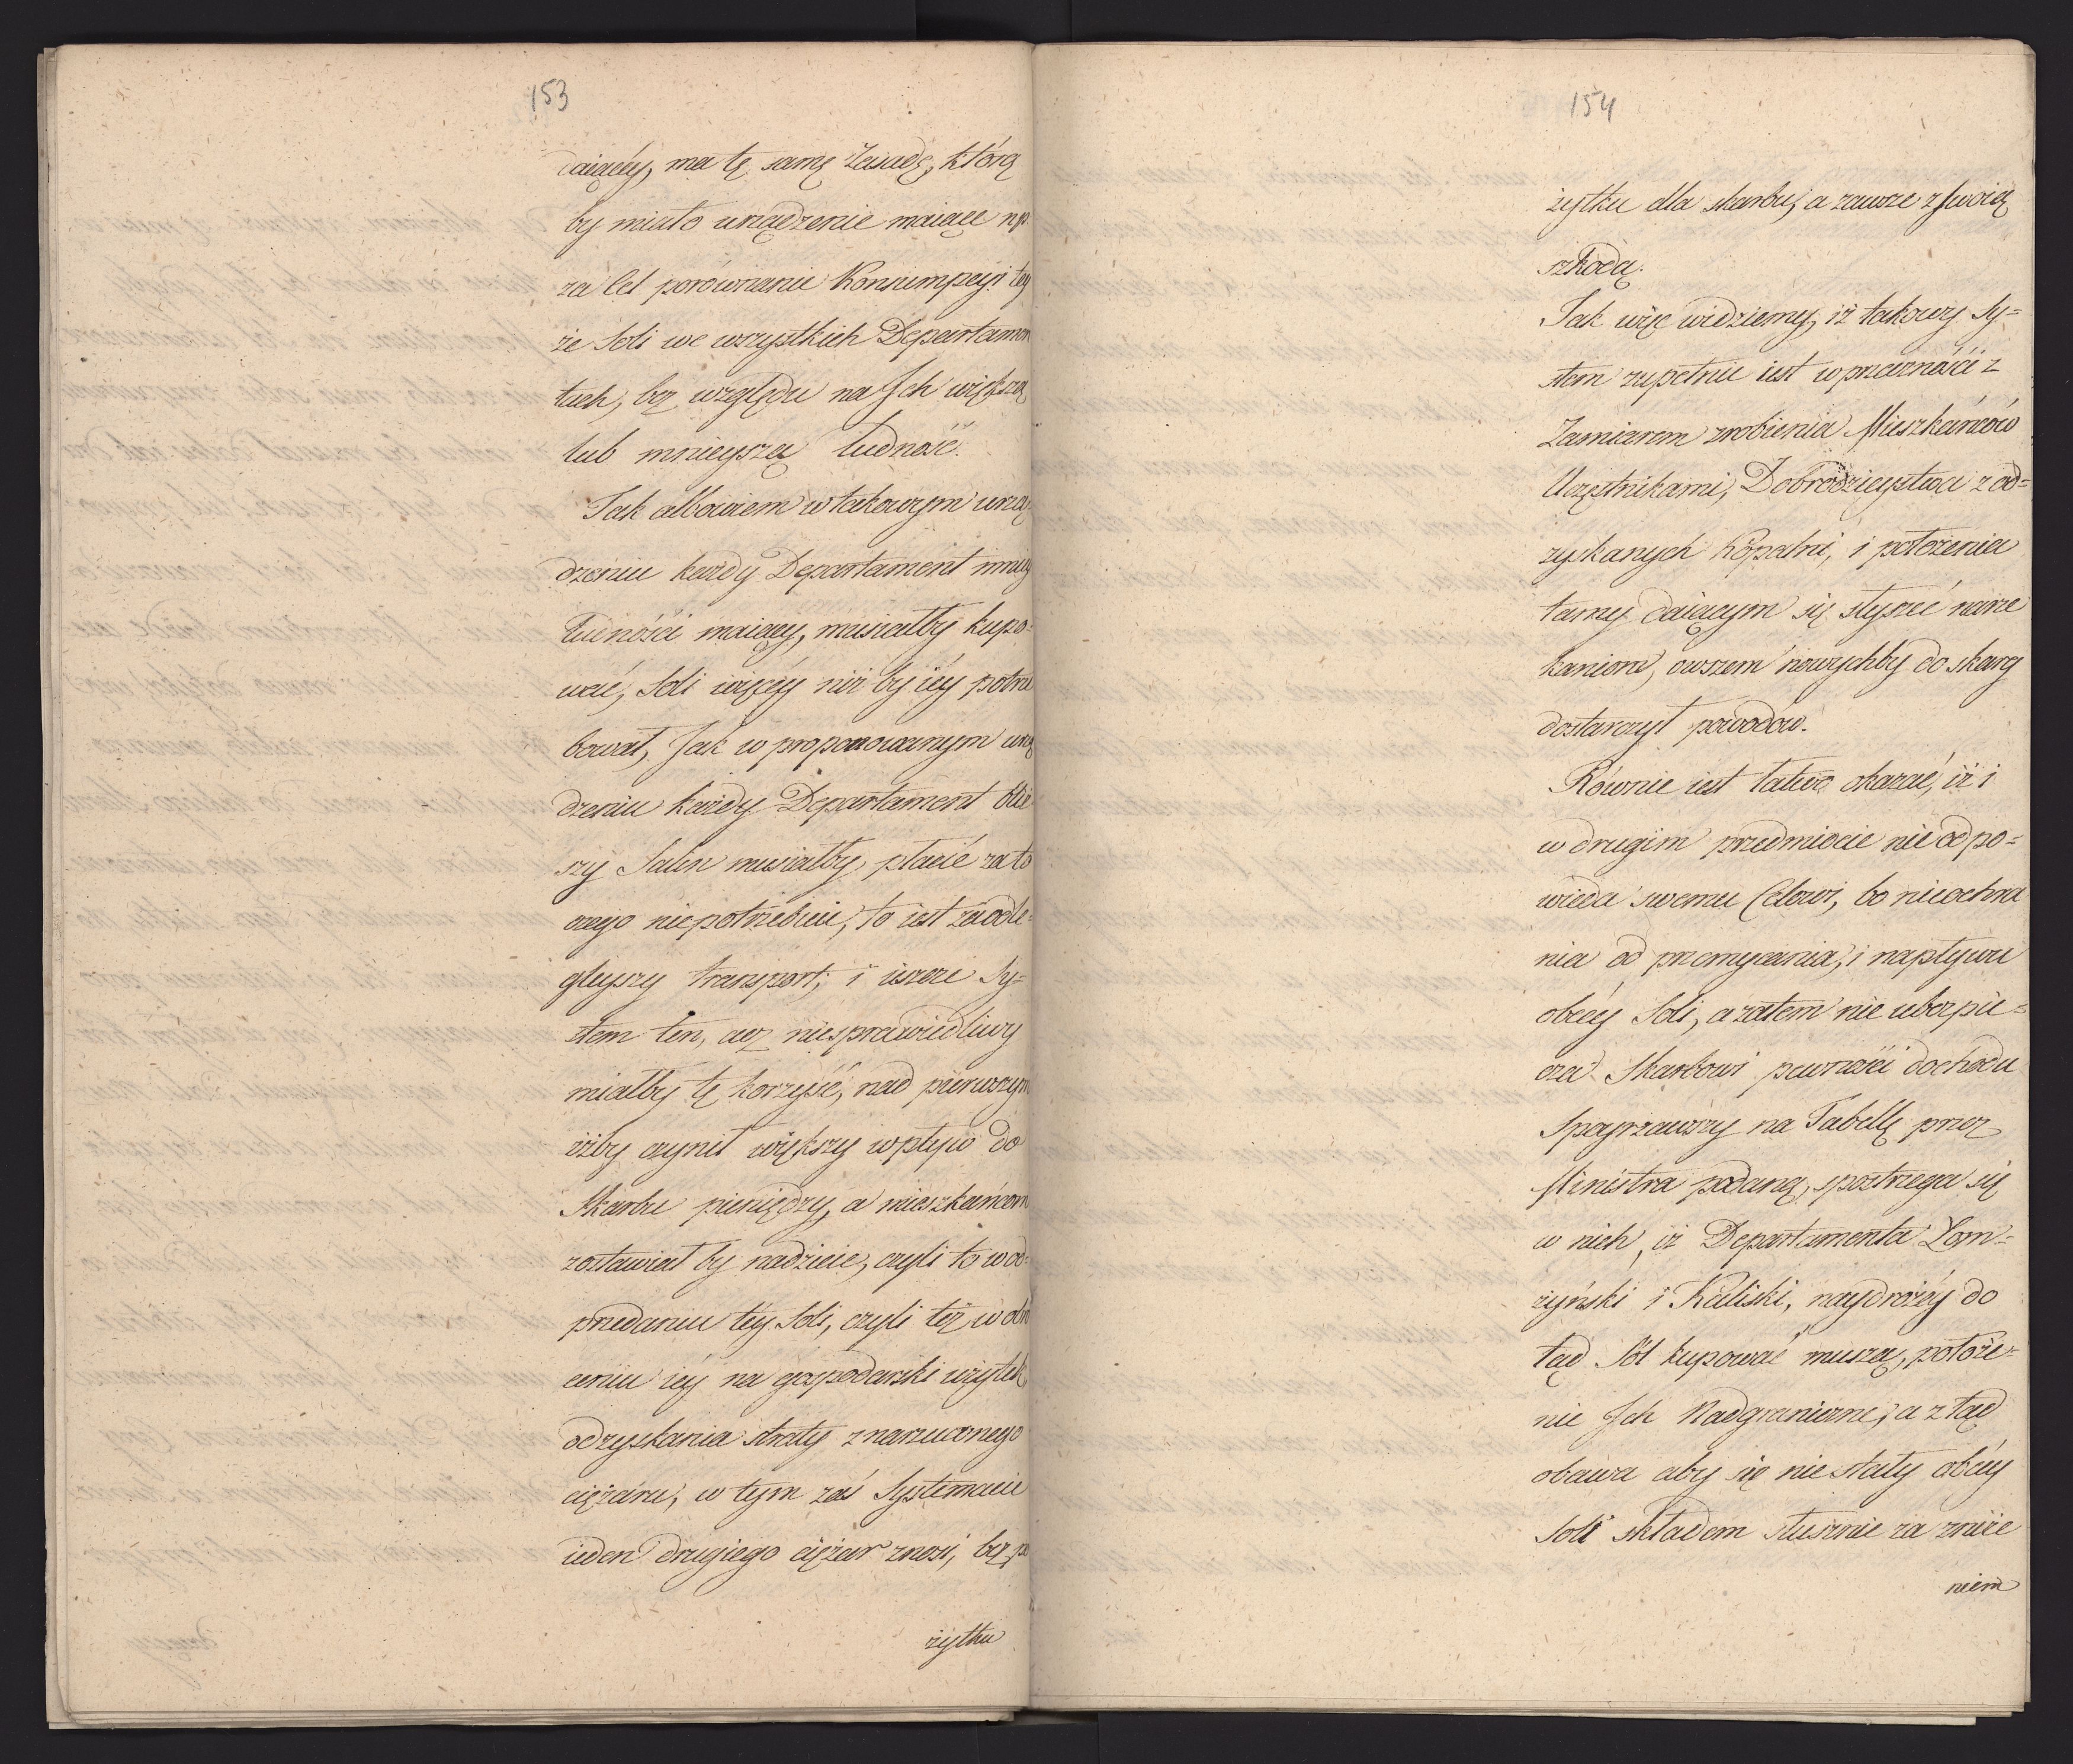 153
daiącéy, ma tę samę Zasadę, którą
by miało urządzenie maiące np.
za Cel porównanie Konsumpcyi tey
że Soli we wszystkich Departamen
tach, bez względu na Ich większą
lub mnieyszą ludność.
Jak albowiem w takowym urzą
dzeniu każdy Departament mniéy
Ludności maiący, musiałby kupo=
wać, Soli więcéy niż by iéy potrze
bował, Jak w proponowanym urzą
dzeniu każdy Departament bliż
szy Salin musiałby płacić za to
czego niepotrzebuie, to iest za odle=
gleyszy transport; i ieszcze Sy=
stem ten, acz niesprawiedliwy
miałby tę korzyść, nad pierwszym
iżby czynił większy wpływ do
Skarbu pieniędzy, a mieszkańcom
zostawiał by nadzieie, czyli to w od=
przedaniu téy Soli, czyli też w obró
ceniu iéy na gospodarski użytek
odzyskania straty z narzuconego
ciężaru, w tym zaś Systemacie
ieden drugiego ciężar znosi, bez po
żytku
154
żytku dla skarbu, a zawsze z swoią
szkodą.
Tak więc widziemy, iż takowy Sy=
stem zupełnie iest w przeczności z
Zamiarem zrobienia Mieszkańców
Uczęstnikami, Dobrodzieystwa z od=
zyskanych Kopalni, i położenia
tamy daiącym się słyszeć narze
kaniom, owszem nowychby do skarg
dostarczył powodów.
Równie iest łatwo okazać, iż i
w drugim przedmiocie nie odpo=
wieda swemu Celowi, bo nieochra
nia od przemycania, i napływu
obcéy Soli, a zatem nie ubezpie=
cza Skarbowi pewności dochodu
Spoyrzawszy na Tabellę przez
Ministra podaną, spostrzega się
w nich, iż Departamenta Łom=
żyński i Kaliski, naydrożéy do
tąd Sól kupować muszą, położe=
nie Ich Nadgraniczne, a ztąd
obawa aby się nie stały obcéy
Soli składem słusznie za zniże
niem